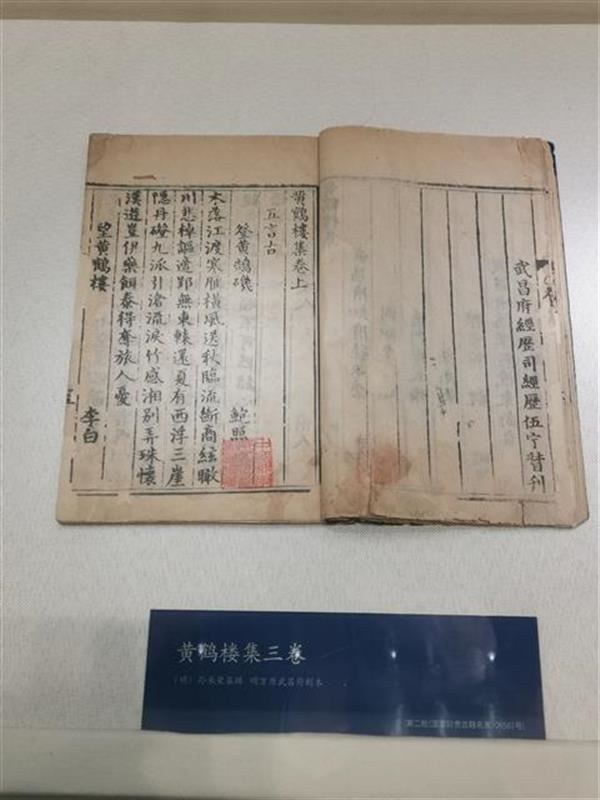 武昌府經歷司經歷伍宁督刊
黃鶴樓集卷上
五言古
登黃鵠磯 鮑照
木落江渡寒雁橫風送秋臨流斷商絃瞰
川悲棹謳適郢無東轅還夏有西浮三崖
隱丹磴九派引滄流淚竹感湘別弄珠懷
漢遊豈伊樂餌泰得奪旅人憂
望黃鶴樓 李白
黄鹤楼集三卷
（明）孙承荣纂辑 明万历武昌府刻本
第二批《国家珍贵古籍名录》06567号